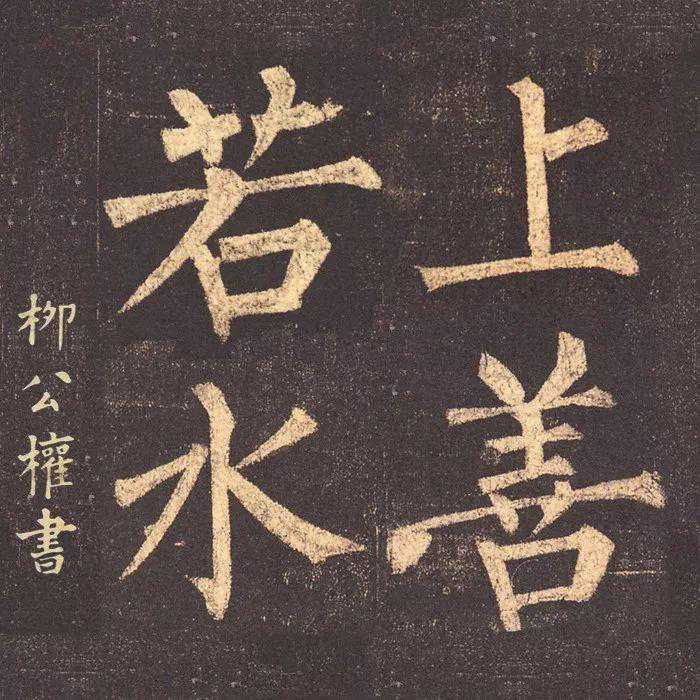 上善
若水
柳公權書